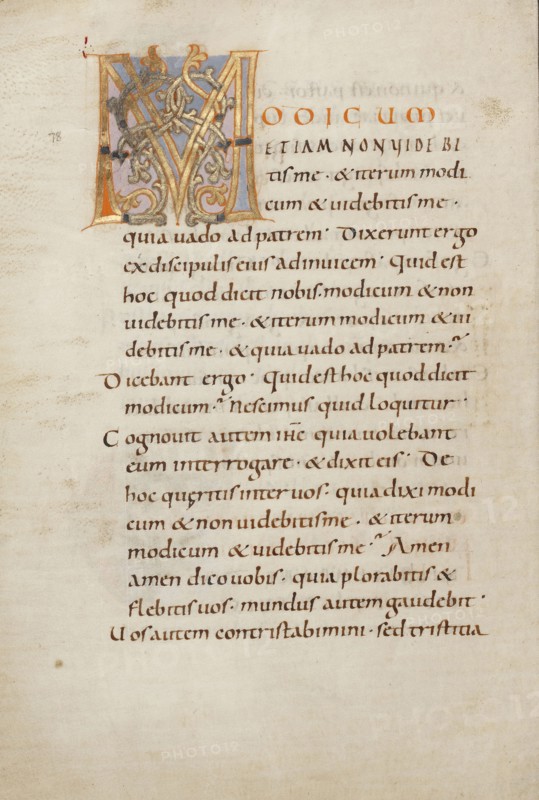 MODICUM
ETIAM NON VIDEBI
tis me · & iterum modi
cum & uidebitis me ·
quia uado ad patrem · Dixerunt ergo
ex discipulis eius ad inuicem · Quid est
hoc quod dicit nobis · modicum & non
uidebitis me · & iterum modicum & ui
debitis me · & quia uado ad patrem ·
Dicebant ergo · Quid est hoc quod dicit
modicum · Nescimus quid loquitur ·
Cognouit autem ihc quia uolebant
eum interrogare · & dixit eis · De
hoc quęritis inter uos · quia dixi modi
cum & non uidebitis me · & iterum
modicum & uidebitis me · Amen
amen dico uobis · quia plorabitis &
flebitis uos · mundus autem gaudebit ·
Uos autem contristabimini · sed tristitia
78